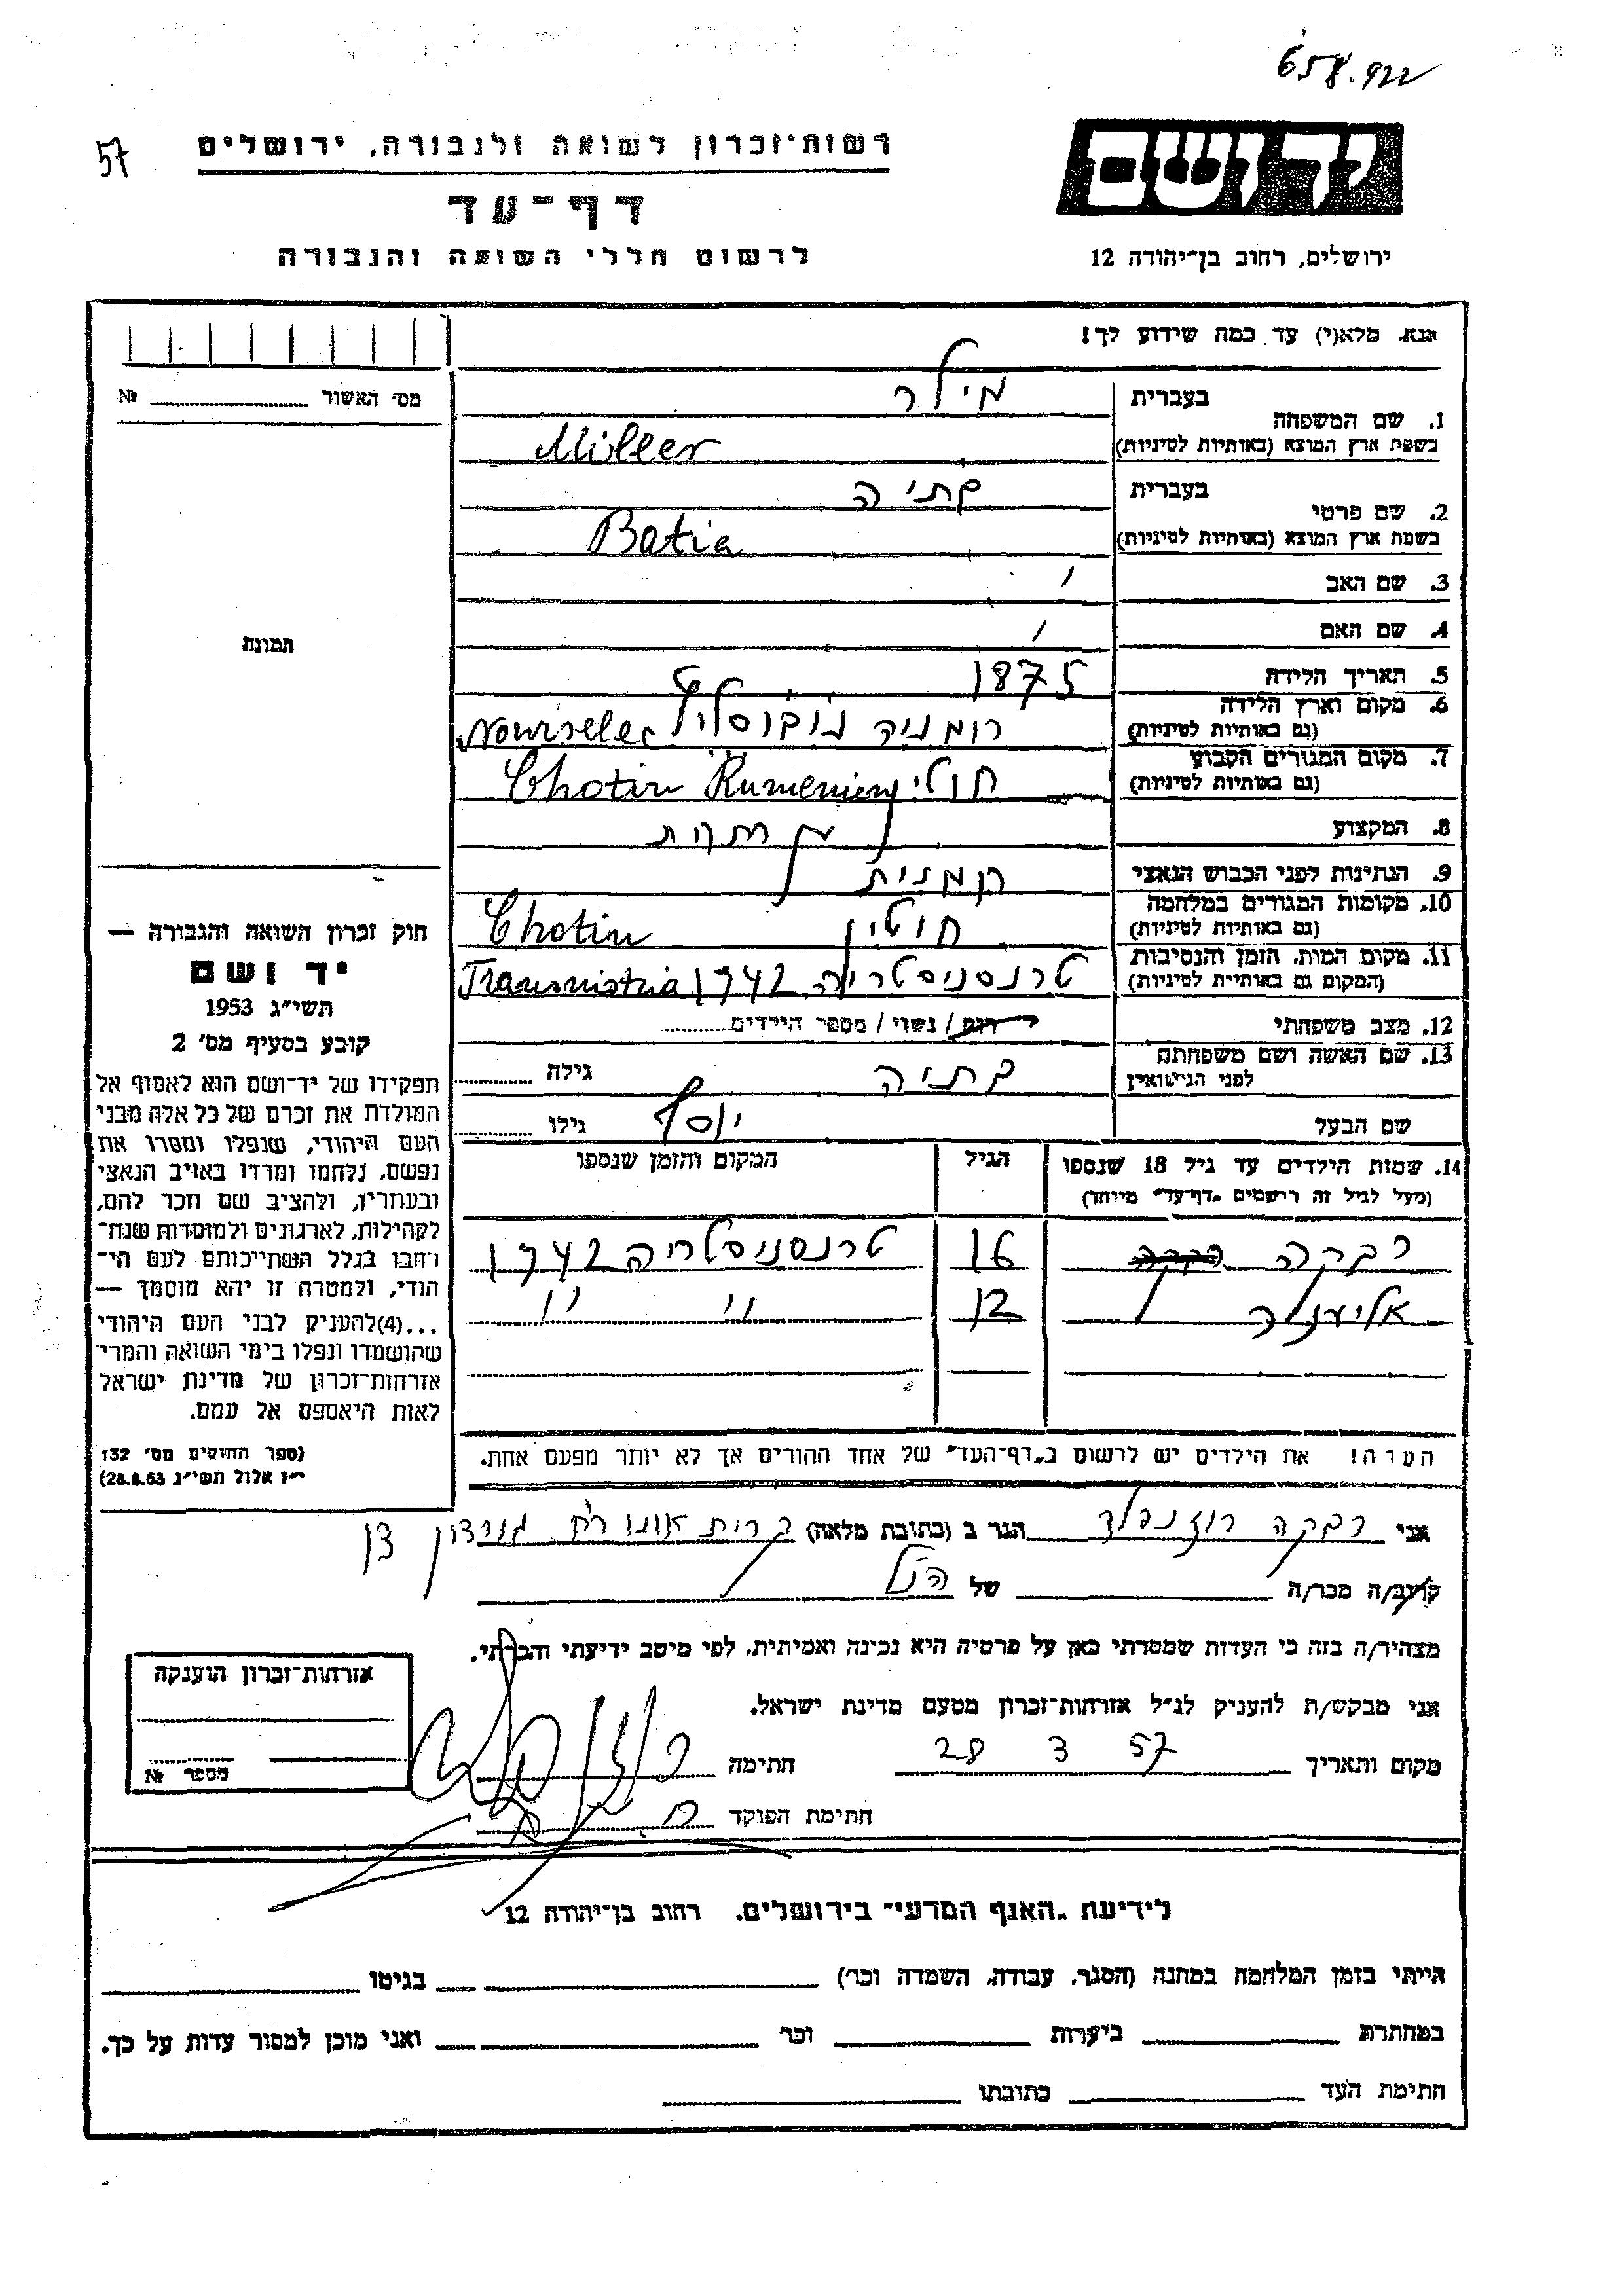 658.922
57
רשות־זכרון לשואה ולגבורה, ירושלים
יד ושם
דף־עד
לרשום חללי השואה והגבורה
ירושלים, רחוב בן־יהודה 12
אנא, מלא(י) עד כמה שידוע לך!
מס' האשור № 
1. שם המשפחה בעברית מילר
בשפת ארץ המוצא (באותיות לטיניות) Müller
2. שם פרטי בעברית בתיה
בשפת ארץ המוצא (באותיות לטיניות) Batia
3. שם האב
4. שם האם
תמונה
5. תאריך הלידה 1875
6. מקום וארץ הלידה (גם באותיות לטיניות) רומניה
7. מקום המגורים הקבוע (גם באותיות לטיניות) Chotin Rumenien
8. המקצוע
9. הנתינות לפני הכבוש הנאצי רומנית
10. מקומות המגורים במלחמה (גם באותיות לטיניות) חוטין Chotin
11. מקום המות, הזמן והנסיבות (המקום גם באותיות לטיניות) טרנסניסטריה 1942 Transnistria
12. מצב משפחתי רווק / נשוי / מספר הילדים
13. שם האשה ושם משפחתה לפני הנישואין בתיה גילה
שם הבעל יוסף גילו
14. שמות הילדים עד גיל 18 שנספו הגיל המקום והזמן שנספו
(מעל לגיל זה רישמים "דף־עד" מייוחד)
רבקה 16 טרנסניסטריה 1942
12 " "
הערה! את הילדים יש לרשום ב"דף־העד" של אחד ההורים אך לא יותר מפעם אחת.
חוק זכרון השואה והגבורה —
יד ושם
תשי"ג 1953
קובע בסעיף מס' 2
תפקידו של יד־ושם הוא לאסוף אל
המולדת את זכרם של כל אלה מבני
העם היהודי, שנפלו ומסרו את
נפשם, נלחמו ומרדו באויב הנאצי
ובעוזריו, ולהציב שם וזכר להם,
לקהילות, לארגונים ולמוסדות שנח־
רבו בגלל השתייכותם לעם הי־
הודי, ולמטרה זו יהא מוסמך —
...(4)להעניק לבני העם היהודי
שהושמדו ונפלו בימי השואה והמרי
אזרחות־זכרון של מדינת ישראל
לאות היאספם אל עמם.
(ספר החוקים מס' 132
י"ז אלול תשי"ג 28.8.53)
אני רבקה רוזנפלד הגר ב (כתובת מלאה) קרית אונו רח' גורדון
קרוב/ה מכר/ה של הנ"ל
מצהיר/ה בזה כי העדות שמסרתי כאן על פרטיה היא נכונה ואמיתית, לפי מיטב ידיעתי והכרתי.
אני מבקש/ת להעניק לנ"ל אזרחות־זכרון מטעם מדינת ישראל.
מקום ותאריך 28 3 57 חתימה
חתימת הפוקד
אזרחות־זכרון הוענקה
מספר №
לידיעת "האגף המדעי" בירושלים, רחוב בן־יהודה 12
הייתי בזמן המלחמה במחנה (הסגר, עבודה, השמדה וכו') בגיטו
במחתרת ביערות וכו' ואני מוכן למסור עדות על כך.
חתימת העד כתובתו